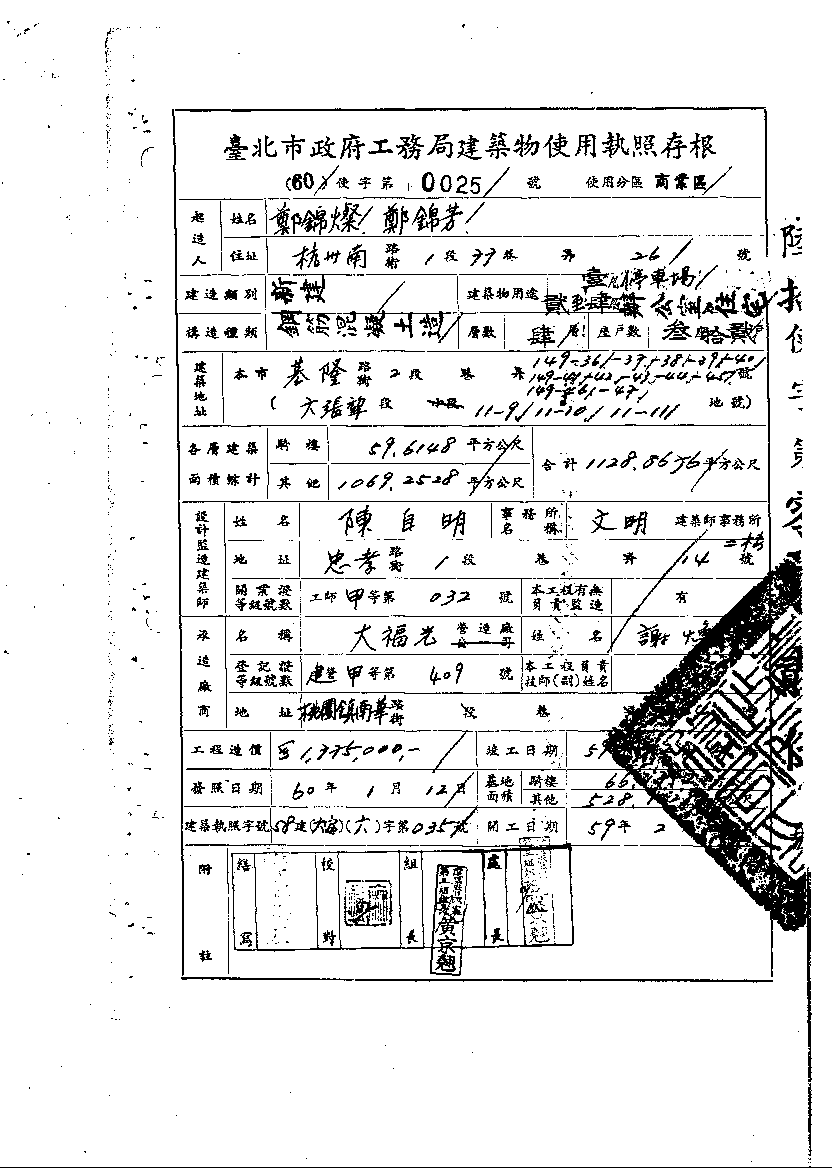 臺北市政府工務局建築物使用執照存根
(60)使字第 0025 號 使用分區 商業區
起造人 姓名 鄭錦燦 鄭錦芳
住址 杭州南 路街 1段 33巷 弄 26 號
建造類別 新建 建築物用途 臺層停車場 貳至肆層辦公室及住宅
構造種類 鋼筋混凝土造 層數 肆層 座戶數 叁拾貳戶
建築地址 本市 基隆 路街 2段 巷 弄 149-36,-37,-38,-39,-40, 號
149-41,-42,-43,-44,-45,
149-46,-47,
( 六張犂 段 小段 11-9, 11-10, 11-111 地號)
各層建築面積總計 騎樓 59.6148 平方公尺 合計 1128.8676 平方公尺
其他 1069.2528 平方公尺
設計監造建築師 姓名 陳自明 事務所名稱 文明 建築師事務所
地址 忠孝 路街 1段 巷 弄 14 號 二樓
開業證等級號數 工師甲等第 032 號 本工程有無負責監造 有
承造廠商 名稱 大福光 營造廠公司 姓名 謝
登記證等級號數 建營甲等第 409 號 本工程負責技師(副)姓名
地址 桃園鎮南華 路街 段 巷
工程造價 1,335,000,- 竣工日期 59
發照日期 60年 1月 12日 基地面積 騎樓 66.
其他 528.
建築執照字號 58建(大安)(六)字第035號 開工日期 59年 2
附註 繕寫 校對 組長 黃京翹 處長